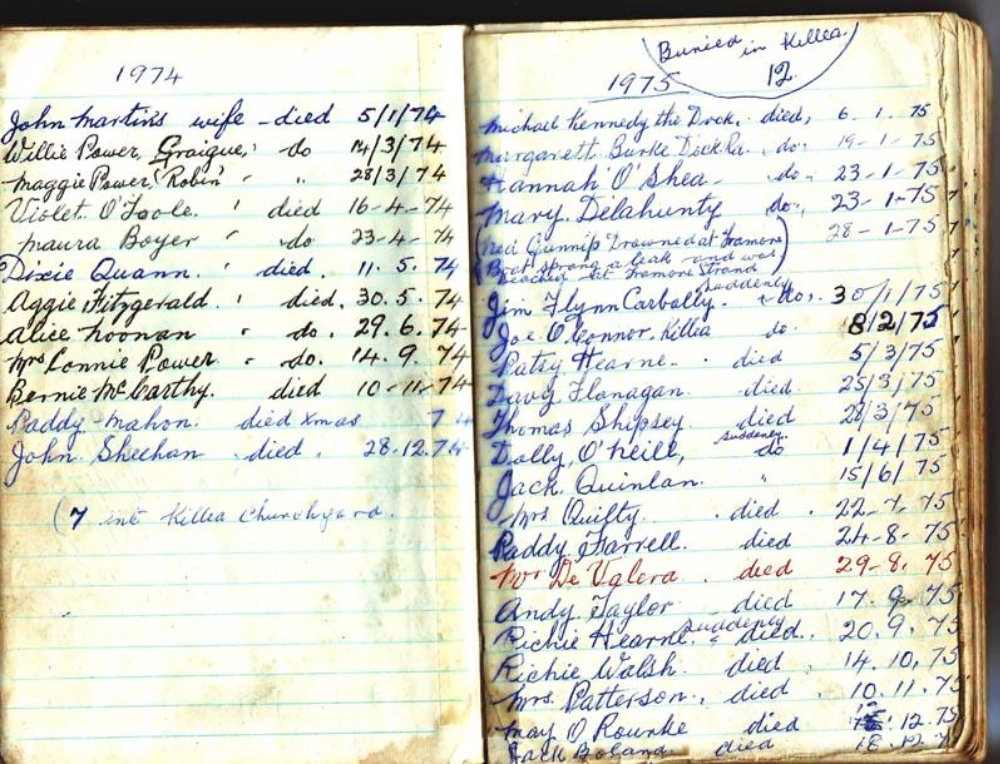 1974
John Martin's wife - died 5/1/74
Willie Power, Graigue, ' do 14/3/74
Maggie Power, 'Robin' " 28/3/74
Violet O'Toole. ' died 16-4-74
Maura Boyer " do 23-4-74
Dixie Quann. ' died. 11.5.74
Aggie Fitzgerald. ' died. 30.5.74
Alice Noonan " do. 29.6.74
Mrs Connie Power. " do. 14.9.74
Bernie McCarthy. died 10-11-74
Paddy Mahon. died Xmas 74
John Sheehan died. 28.12.74
(7 Killea Churchyard.
Buried in Killea.
12.
1975
Michael Kennedy the Dock. died, 6.1.75
Margarett Burke Dock Rd. do. 19-1-75
Hannah O'Shea - do. 23-1-75
Mary. Delahunty do., 23-1-75
(Ned Gunnip Drowned at Tramore 28-1-75
Boat sprang a leak and was
at Tramore Strand)
suddenly
Jim Flynn Carbally. do. 30/1/75
Joe O'Connor. Killea do. 8/2/75
Patsy Hearne. died 5/3/75
Davy Flanagan. died. 25/3/75
Thomas Shipsey. died 28/3/75
suddenly
Dolly O'Neill, do 1/4/75
Jack. Quinlan. " 15/6/75
Mrs Quilty. died. 22-7-75
Paddy Farrell. died 24-8-75
Mr De Valera. died 29-8.75
Andy. Taylor died 17.9.75
suddenly
Richie Hearne. died. 20.9.75
Richie Walsh. died. 14.10.75
Mrs. Patterson. died. 10.11.75
May O Rourke died 12.75
Jack Boland. died 18.12.7